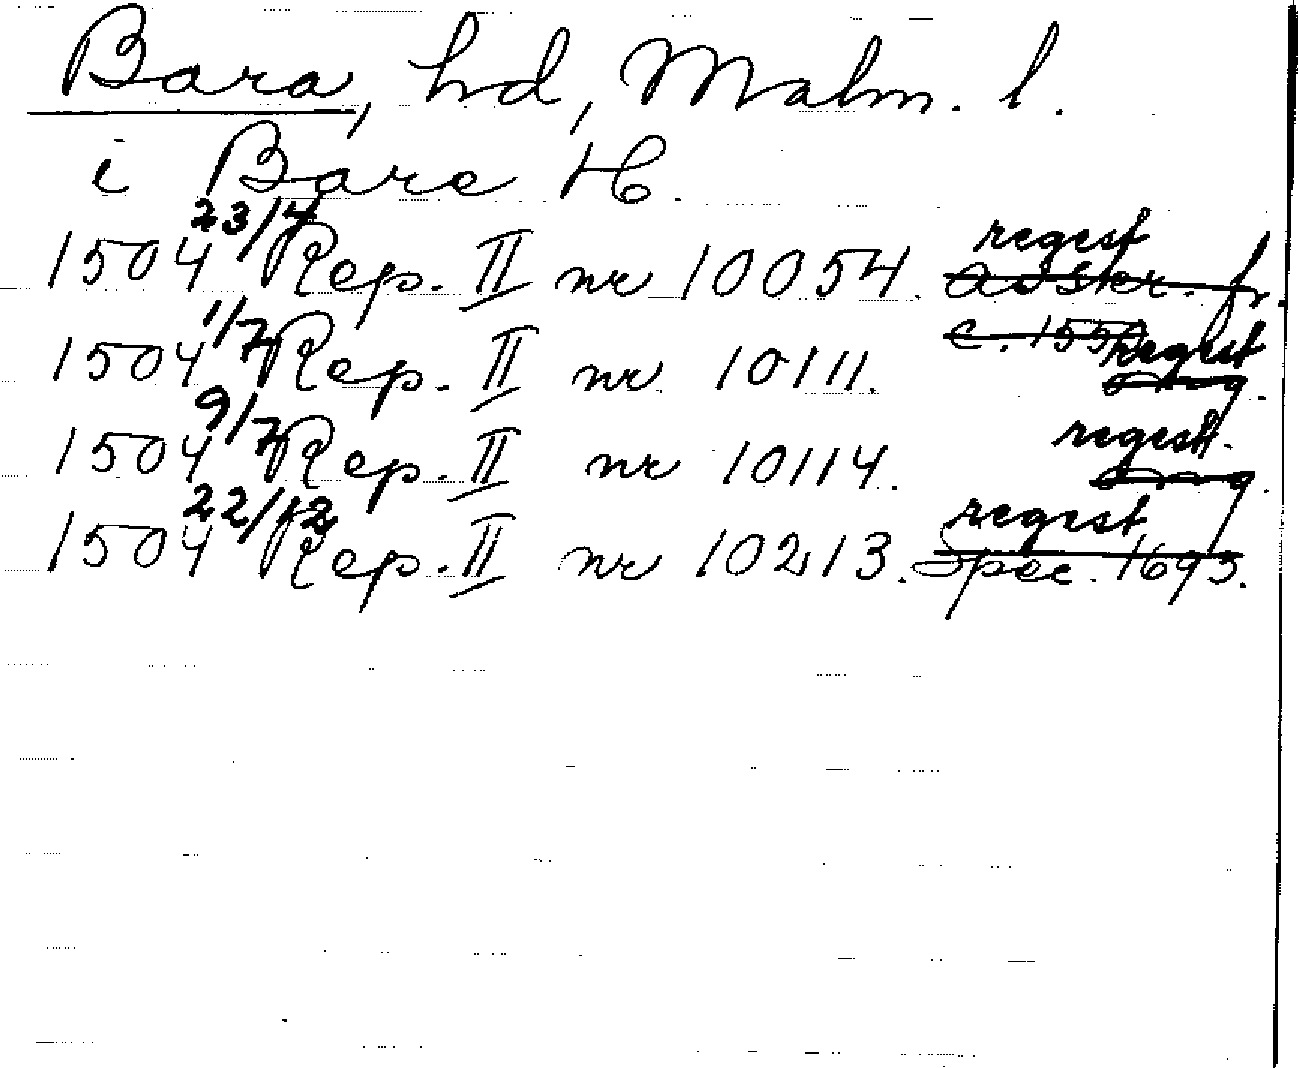 Bara, hd, Malm. l.
i Bare H.
1504 23/4 Rep. II nr 10054. regest
avskr. fr.
c. 1550
1504 1/7 Rep. II nr 10111. regest
orig.
1504 9/7 Rep. II nr 10114. regest.
orig.
1504 22/12 Rep. II nr 10213. regest
Spec. 1693.